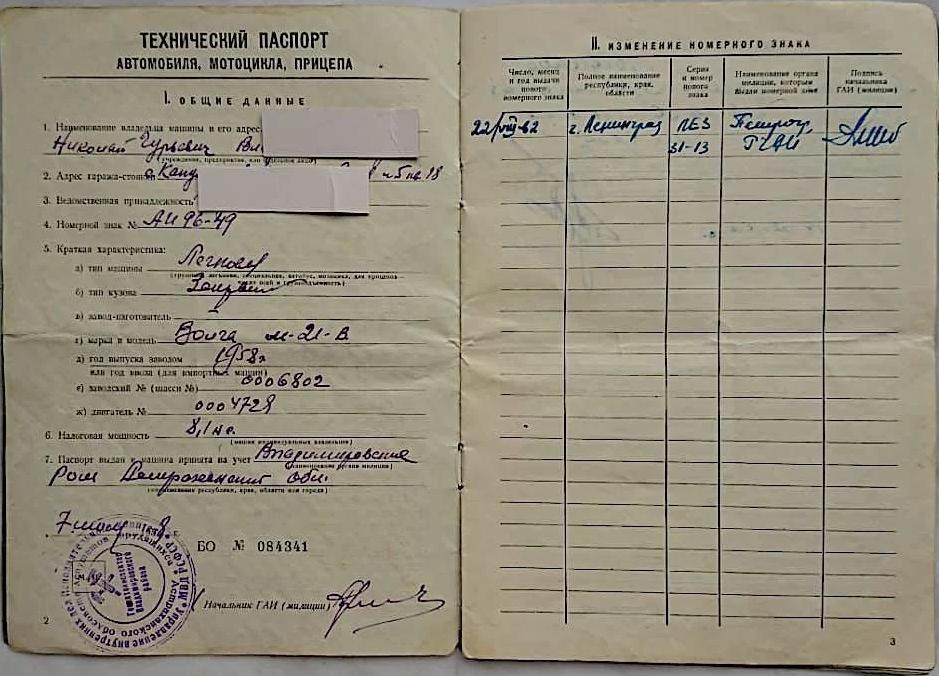 ТЕХНИЧЕСКИЙ ПАСПОРТ
АВТОМОБИЛЯ, МОТОЦИКЛА, ПРИЦЕПА
I. ОБЩИЕ ДАННЫЕ
1. Наименование владельца машины и его адрес
Николай Гурьевич
(учреждение, предприятие, или отдельное лицо)
2. Адрес гаража-стоянки
3. Ведомственная принадлежность
4. Номерной знак № АИ 96-49
5. Краткая характеристика:
а) тип машины Легковой
б) тип кузова
в) завод-изготовитель
г) марка и модель Волга М-21-В
д) год выпуска заводом 1958г
или год ввоза (для импортных машин)
е) заводский № (шасси №) 0006802
ж) двигатель № 0004728
6. Налоговая мощность 8,1
(машин индивидуальных владельцев)
7. Паспорт выдан и машина принята на учет Владимировское
(наименование органа милиции)
обл.
(наименование республики, края, области или города)
БО № 084341
Начальник ГАИ (милиции)
2
II. ИЗМЕНЕНИЕ НОМЕРНОГО ЗНАКА
Число, месяц и год выдачи нового номерного знака
Полное наименование республики, края, области
Серия и номер нового знака
Наименование органа милиции, которым выдан номерной знак
Подпись начальника ГАИ (милиции)
22/VIII-62 г. Ленинград ЛЕЗ
31-13 ГАИ
3